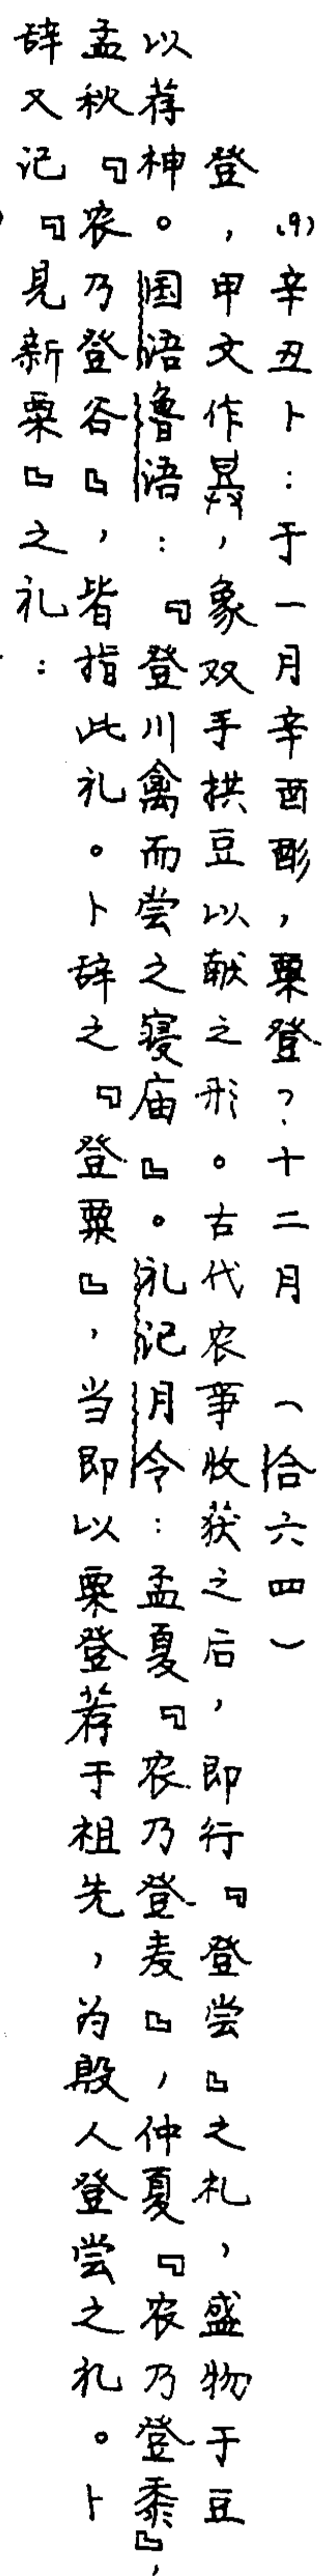 (9)辛丑卜:于一月辛酉酻,粟登?十二月 (拾六四)
登,甲文作𤼷,象双手拱豆以献之形。古代农事收获之后,即行『登尝』之礼,盛物于豆
以荐神。国语鲁语:『登川禽而尝之寝庙』。礼记月令:孟夏『农乃登麦』,仲夏『农乃登黍』,
孟秋『农乃登谷』,皆指此礼。卜辞之『登粟』,当即以粟登荐于祖先,为殷人登尝之礼。卜
辞又记『見新粟』之礼: